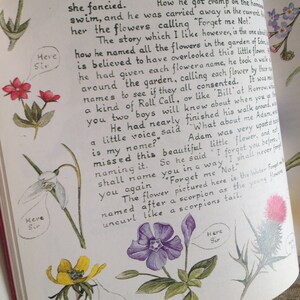 she fancied. How he got cramp on the
swim, and he was carried away in the current,
her the flowers calling "Forget me Not!"
The story which I like however, is the one
how he named all the flowers in the garden of
is believed to have overlooked this little flower
he had given each flower a name, he took a
around the garden, calling each flower by
names to see if they all consented. It was
a kind of Roll Call, or like "Bill" at Harrow
you two boys will know about when you
He had nearly finished his walk around
a little voice said "What about me Adam,
is my name?" Adam was very upset
missed this beautiful little flower
naming it. So he said "I forgot you before,
shall name you in a way I shall never
you again "Forget me Not!"
The flower pictured here is the
named after a scorpion as the
uncurl like a scorpions tail.
Here
Sir
Here
Sir
Here
Sir